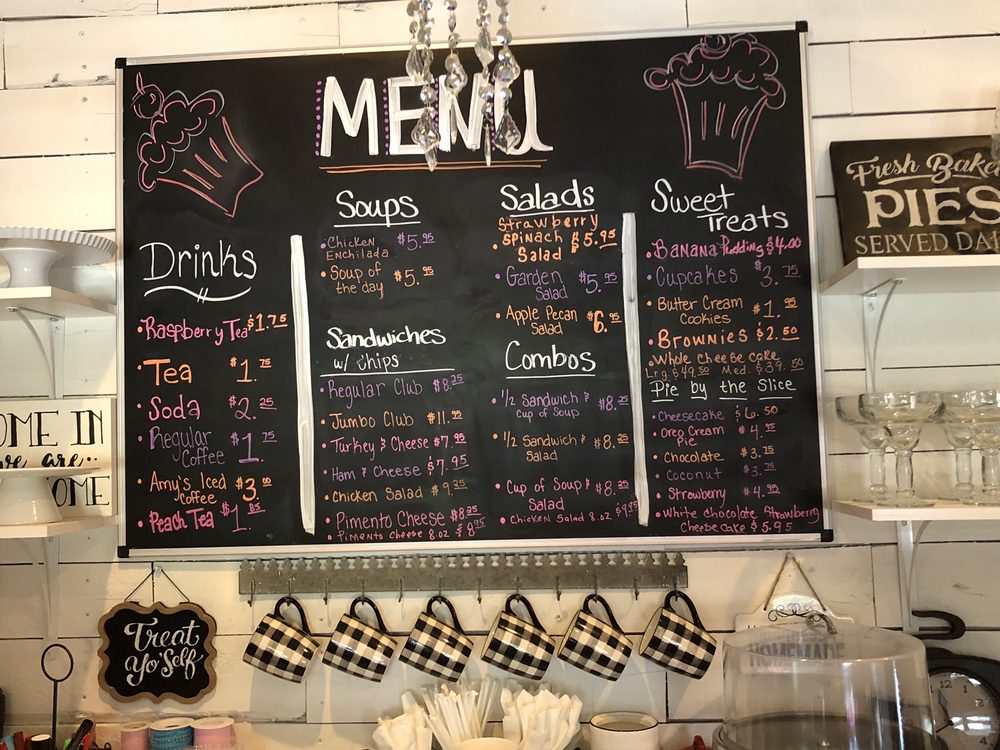 MENU
Drinks
• Raspberry Tea $1.75
• Tea $1.75
• Soda $2.25
• Regular Coffee $1.75
• Amy's Iced Coffee $3.00
• Peach Tea $1.85
Soups
• Chicken Enchilada $5.95
• Soup of the day $5.95
Sandwiches
w/ chips
• Regular Club $8.25
• Jumbo Club $11.95
• Turkey & Cheese $7.95
• Ham & Cheese $7.95
• Chicken Salad $9.25
• Pimento Cheese $8.25
• Pimento Cheese 8.oz $8.95
Salads
• Strawberry
Spinach $5.95
Salad
• Garden $5.95
Salad
• Apple Pecan $6.95
Salad
Combos
• 1/2 Sandwich & $8.25
Cup of Soup
• 1/2 Sandwich & $8.25
Salad
• Cup of Soup & $8.25
Salad
• Chicken Salad 8.oz $9.95
Sweet
Treats
• Banana Pudding $4.00
• Cupcakes $3.75
• Butter Cream $1.95
Cookies
• Brownies $2.50
• Whole Cheesecake
Lrg. $49.50 Med. $39.50
Pie by the Slice
• Cheesecake $6.50
• Oreo Cream $4.95
Pie
• Chocolate $3.75
• Coconut $3.75
• Strawberry $4.95
• White chocolate Strawberry
Cheesecake $5.95
Fresh Baked
PIES
SERVED
OME IN
we are..
OME
Treat
Yo'Self
HOMEMADE
12